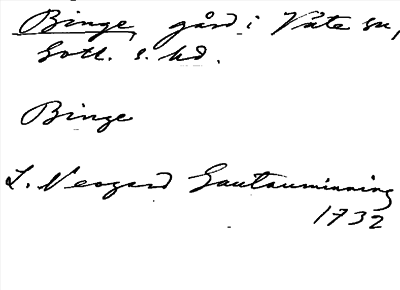 Binge, gård i Väte sn,
Gotl. s. hd.
Binge
L. Neogard Gautauminning
1732